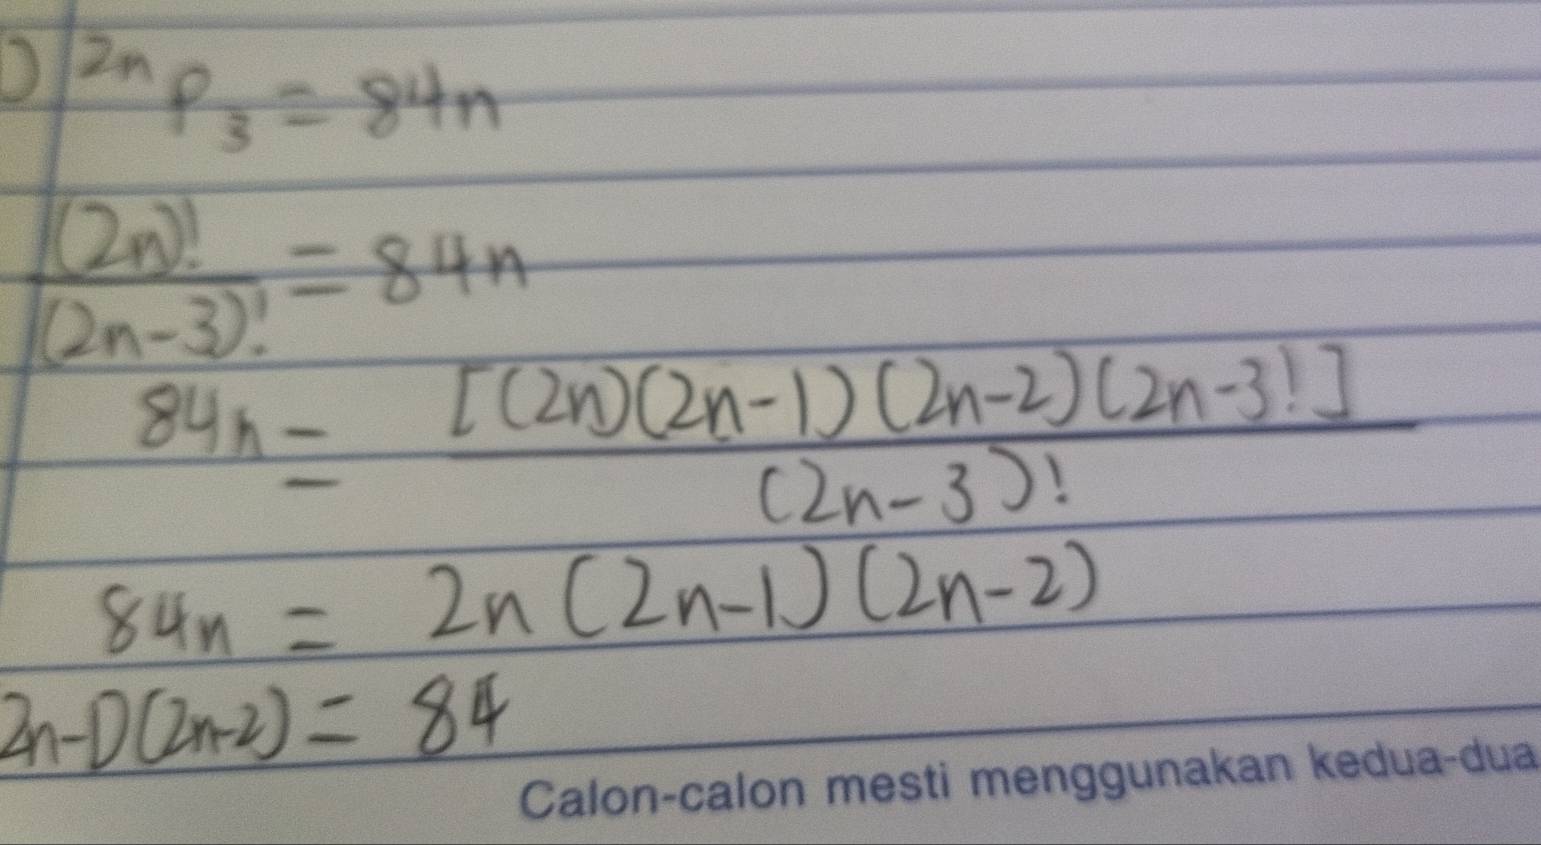 1) 2n P 3 = 84n
(2n)! / (2n-3)! = 84n
84n = [(2n)(2n-1)(2n-2)(2n-3!] / (2n-3)!
84n = 2n(2n-1)(2n-2)
2n-1)(2n-2) = 84
Calon-calon mesti menggunakan kedua-dua